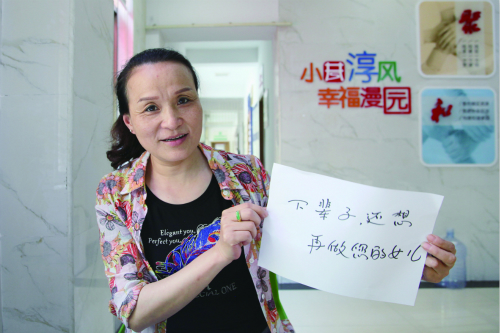 小井淳风
幸福漫园
和
和
下辈子,还想
再做您的女儿
Elegant you,
Perfect you,
ONE